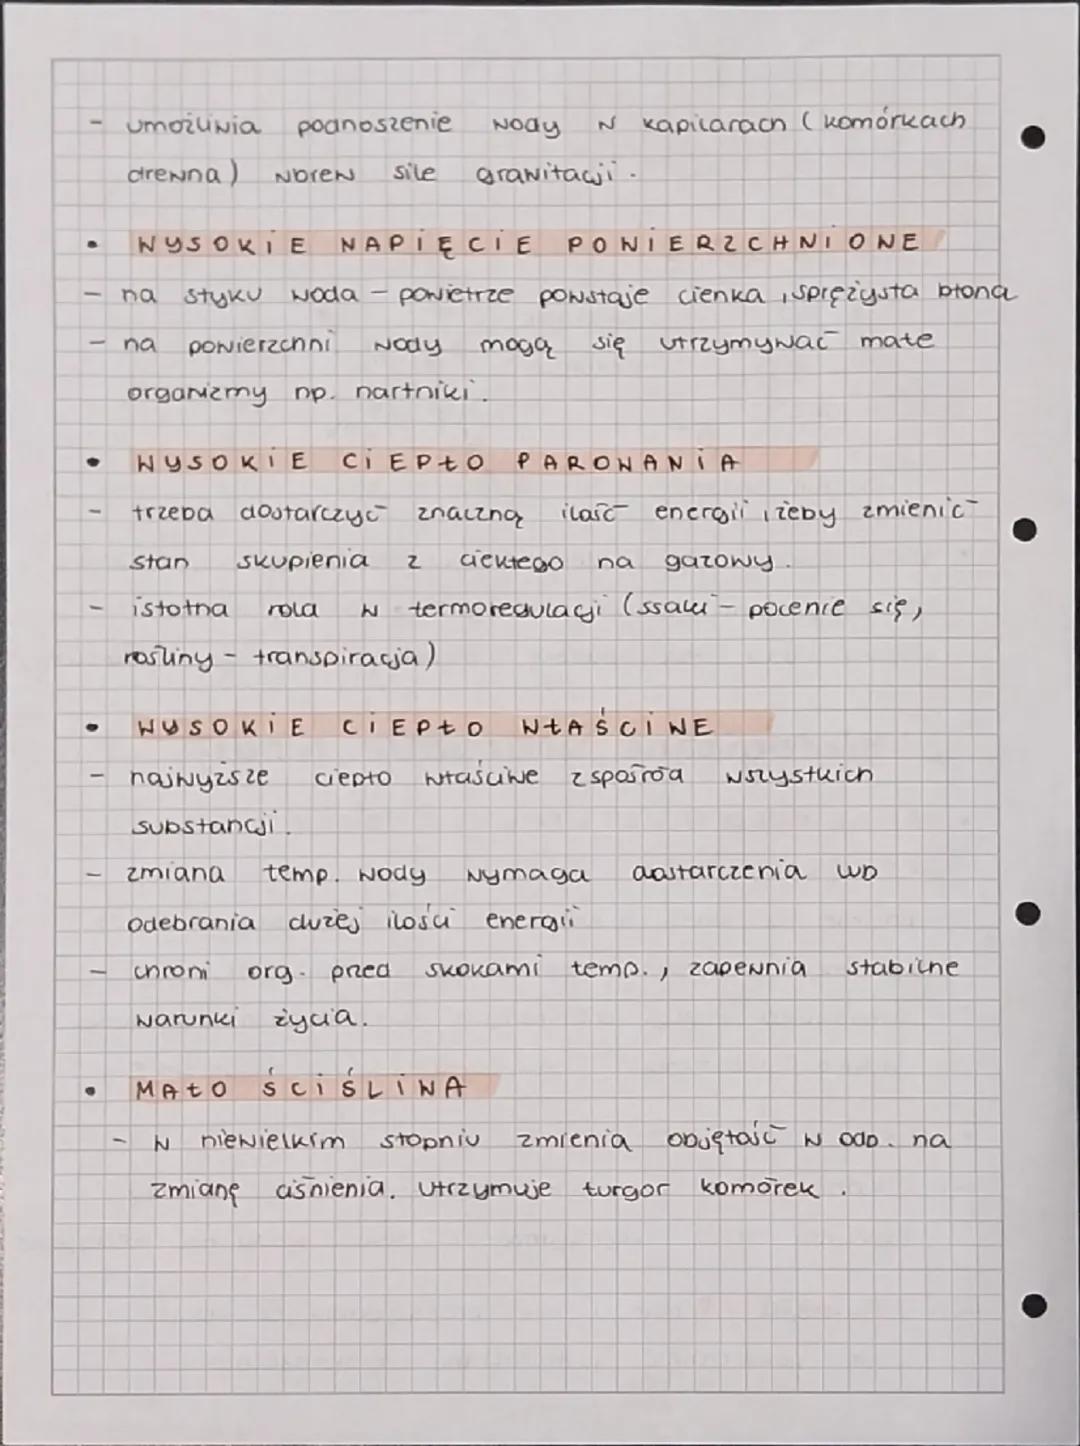 - umożliwia podnoszenie wody w kapilarach (komórkach
drewna) wbrew sile grawitacji.
• WYSOKIE NAPIĘCIE POWIERZCHNIONE
- na styku woda - powietrze powstaje cienka, sprężysta błona
- na powierzchni wody mogą się utrzymywać małe
organizmy np. nartniki.
• WYSOKIE CIEPŁO PAROWANIA
- trzeba dostarczyć znaczną ilość energii, żeby zmienić
stan skupienia z ciekłego na gazowy.
- istotna rola w termoregulacji (ssaki - pocenie się,
rośliny - transpiracja)
• WYSOKIE CIEPŁO WŁAŚCIWE
- najwyższe ciepło właściwe spośród wszystkich
substancji.
- zmiana temp. wody wymaga dostarczenia lub
odebrania dużej ilości energii
- chroni org. przed skokami temp., zapewnia stabilne
warunki życia.
• MAŁO ŚCIŚLIWA
- w niewielkim stopniu zmienia objętość w odp. na
zmianę ciśnienia. Utrzymuje turgor komórek.